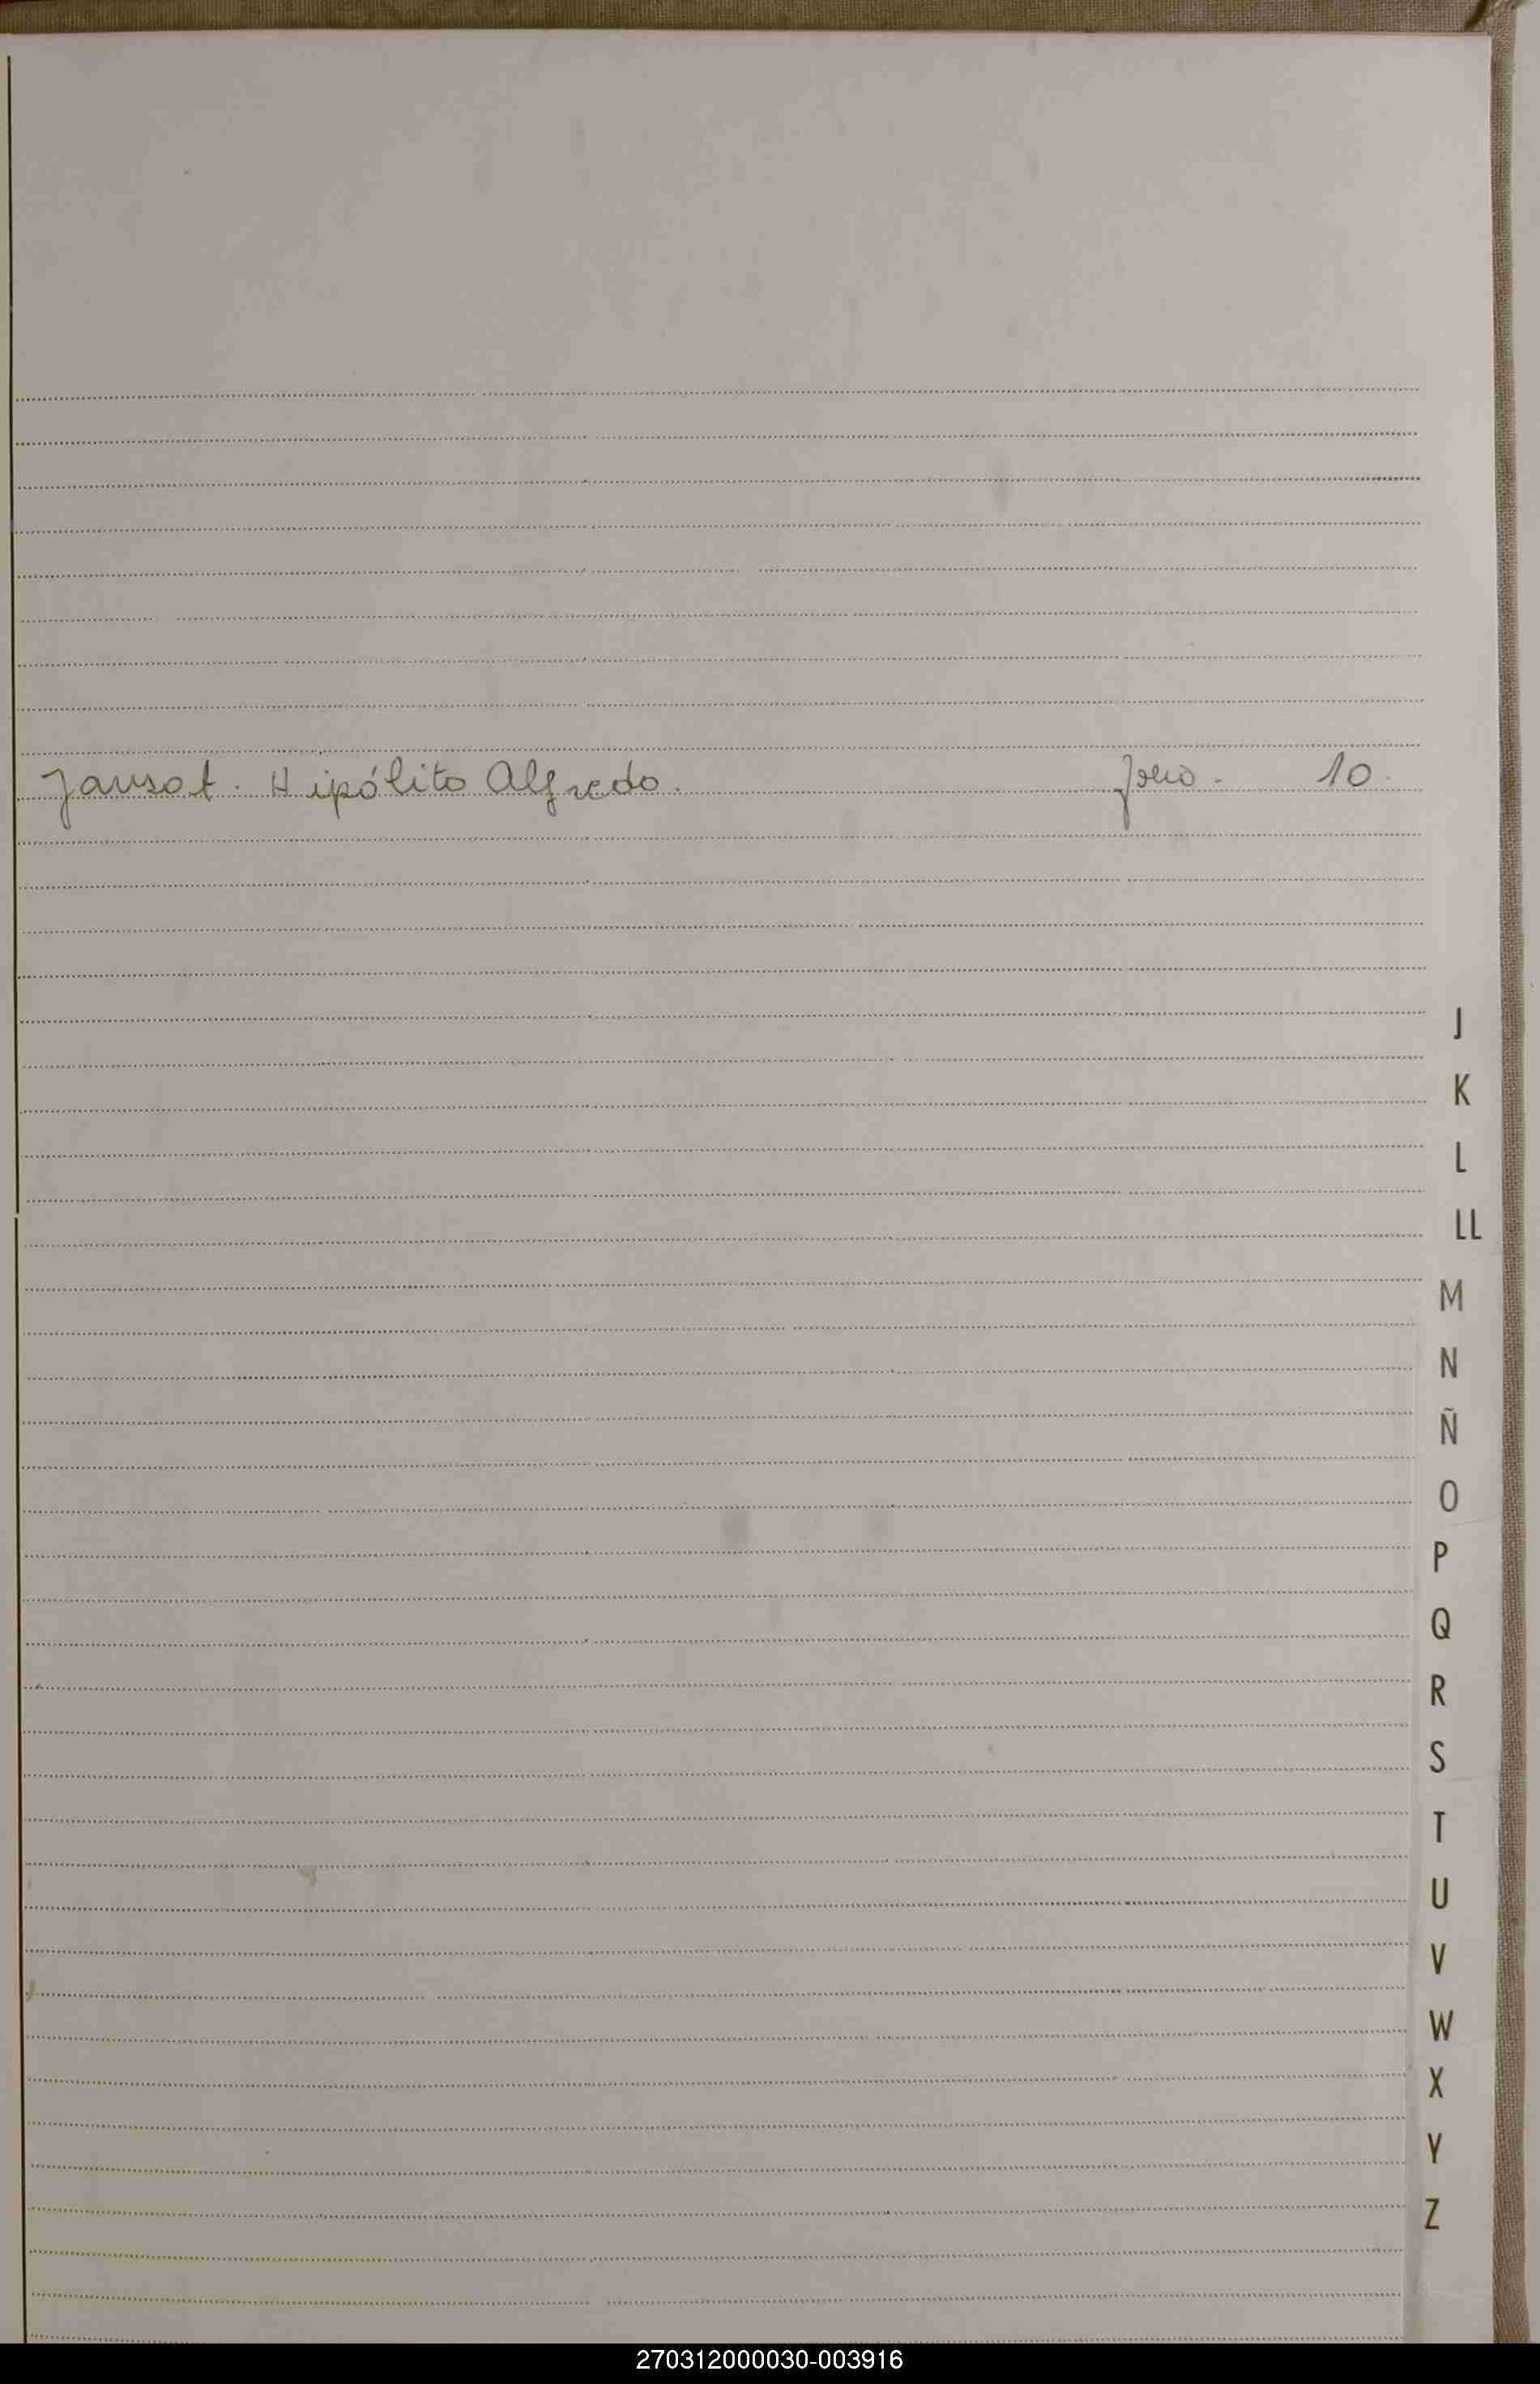 Jausot. Hipólito Alfredo. folio - 10.
J
K
L
LL
M
N
Ñ
O
P
Q
R
S
T
U
V
W
X
Y
Z
270312000030-003916